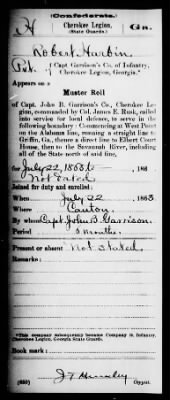 (Confederate.)
H Cherokee Legion, Ga.
(State Guards.)
Robert Harbin
Pvt. of Capt. Garrison's Co. of Infantry,
Cherokee Legion, Georgia.*
Appears on
Muster Roll
of Capt. John B. Garrison's Co., Cherokee Le-
gion, commanded by Col. James E. Rusk, called
into service for local defence, to serve in the
following boundary: Commencing at West Point
on the Alabama line, running a straight line to
Griffin, Ga., thence a direct line to Elbert Court
House, then to the Savannah River, including
all of the State north of said line,
July 22, 186
Not dated
Joined for duty and enrolled:
When July 22 1863
Where Canton
By whom Capt. John B. Garrison
Period 6 months.
Present or absent Not stated.
Remarks:
*This company subsequently became Company H, Infantry,
Cherokee Legion, Georgia State Guards.
Book mark:
Copyist.